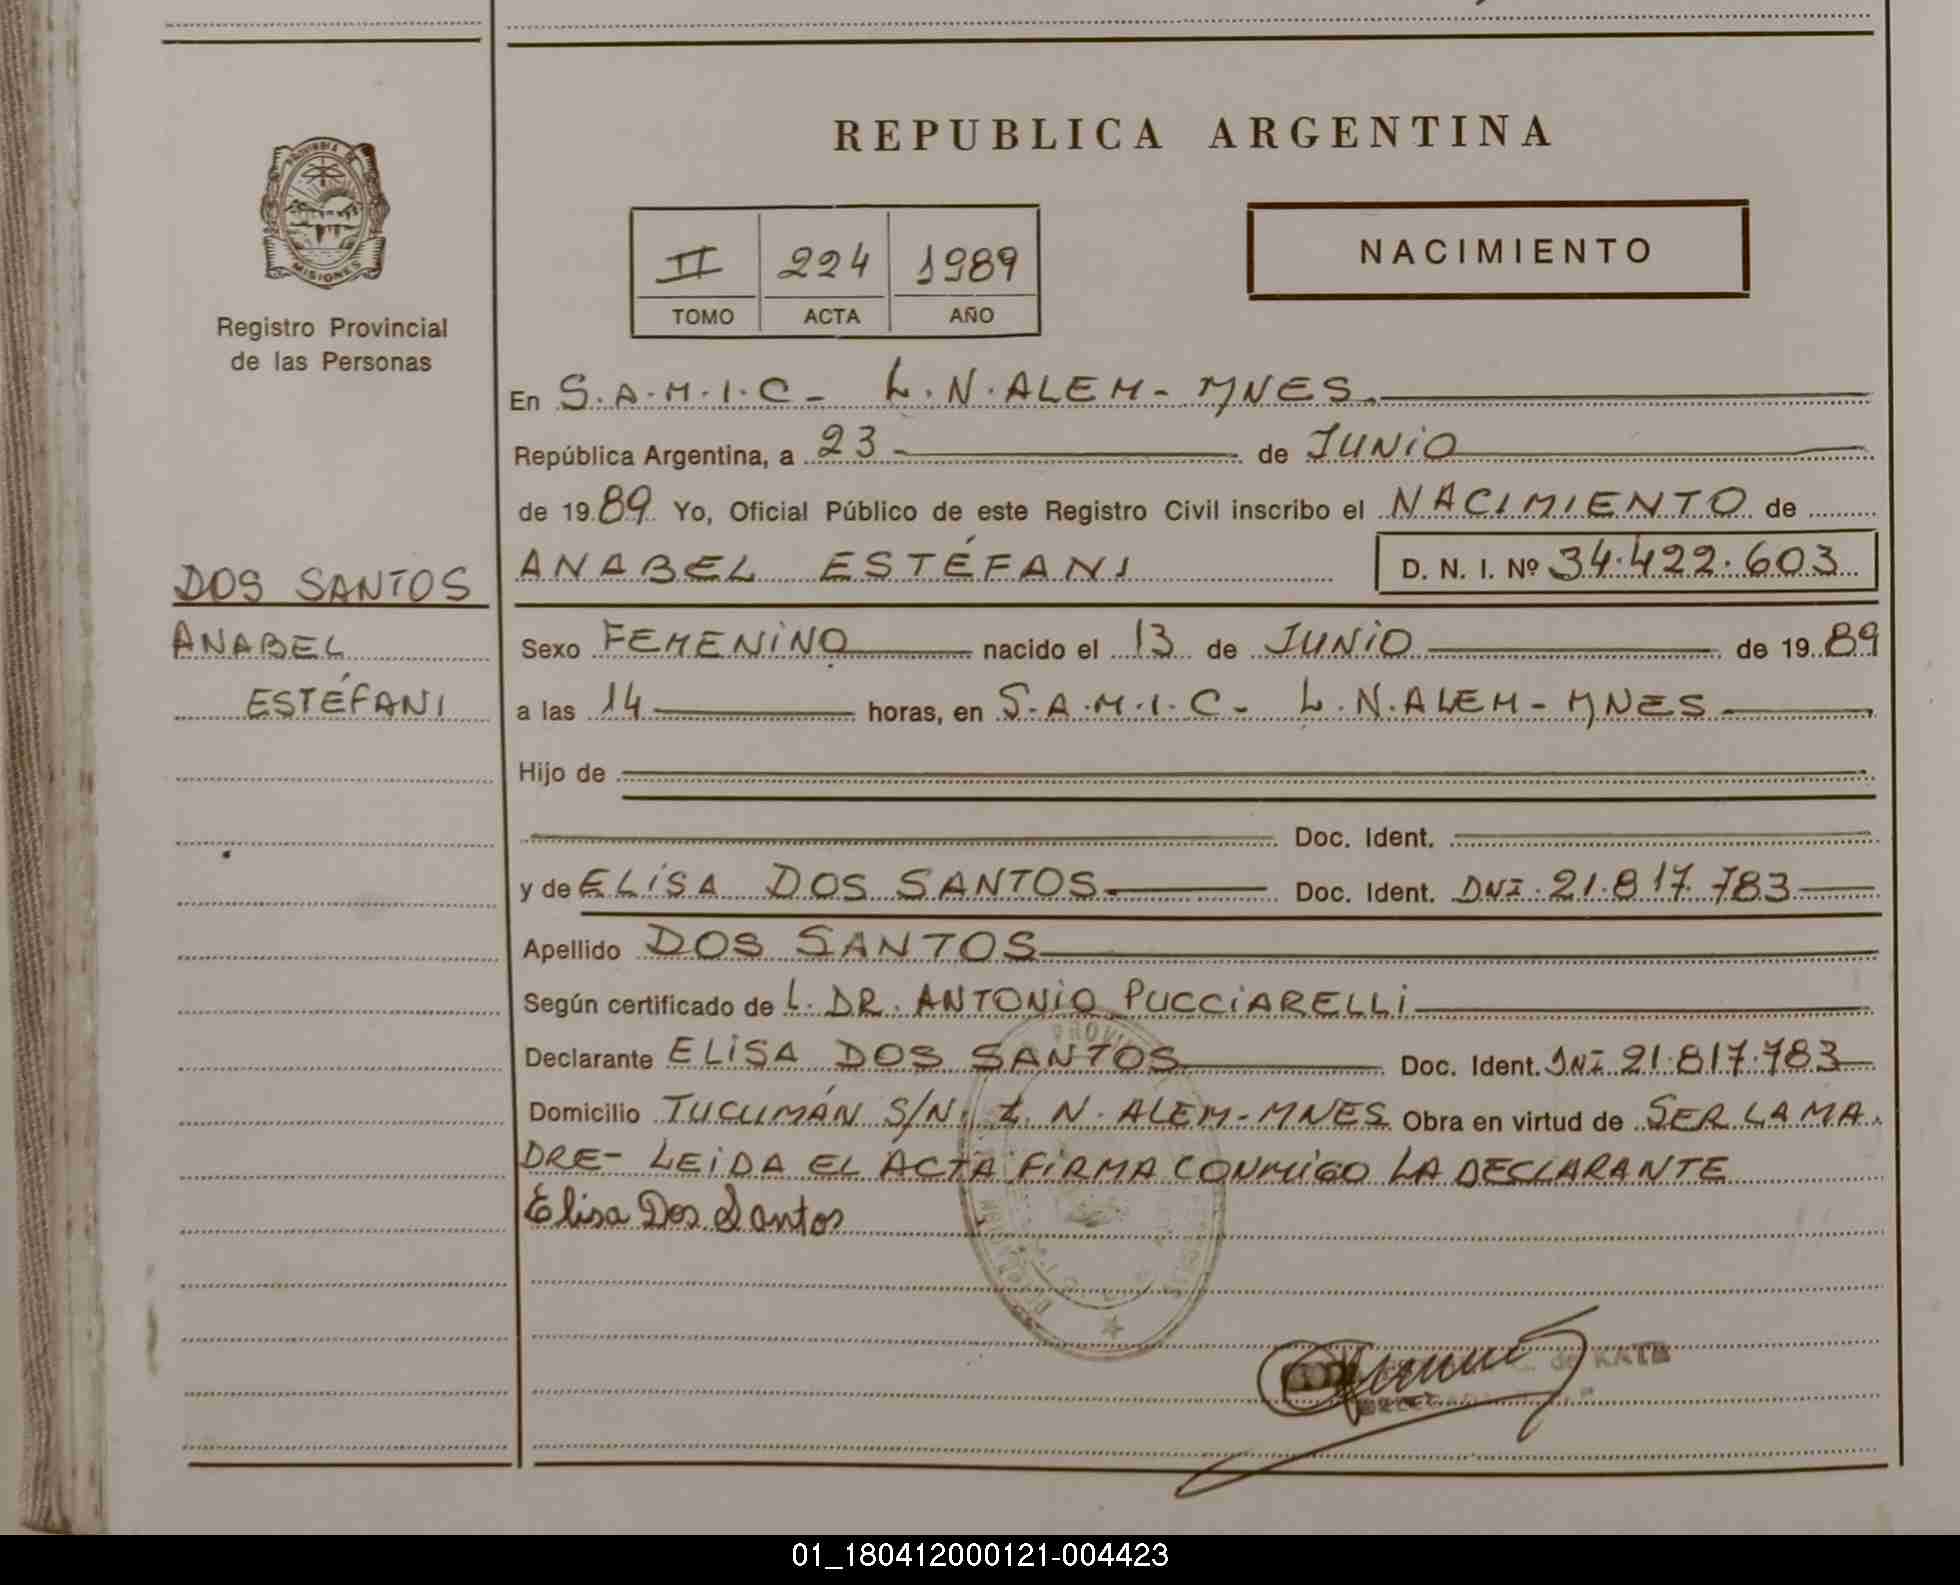 REPUBLICA ARGENTINA
PROVINCIA DE
MISIONES
Registro Provincial
de las Personas
II 224 1989
TOMO ACTA AÑO
NACIMIENTO
En S.A.M.I.C- L.N.ALEM- MNES.
República Argentina, a 23 de JUNIO
de 19 89 Yo, Oficial Público de este Registro Civil inscribo el NACIMIENTO de
ANABEL ESTÉFANI D. N. I. Nº 34.422.603
DOS SANTOS
ANABEL
ESTÉFANI
Sexo FEMENINO nacido el 13 de JUNIO de 19 89
a las 14 horas, en S.A.M.I.C- L.N.ALEM- MNES
Hijo de
Doc. Ident.
y de ELISA DOS SANTOS Doc. Ident. DNI. 21.817.783
Apellido DOS SANTOS
Según certificado de L. DR. ANTONIO PUCCIARELLI
Declarante ELISA DOS SANTOS Doc. Ident. DNI 21.817.783
Domicilio TUCUMÁN S/N. L. N. ALEM-MNES Obra en virtud de SER LA MA
DRE- LEIDA EL ACTA FIRMA CONMIGO LA DECLARANTE
Elisa Dos Santos
01_180412000121-004423